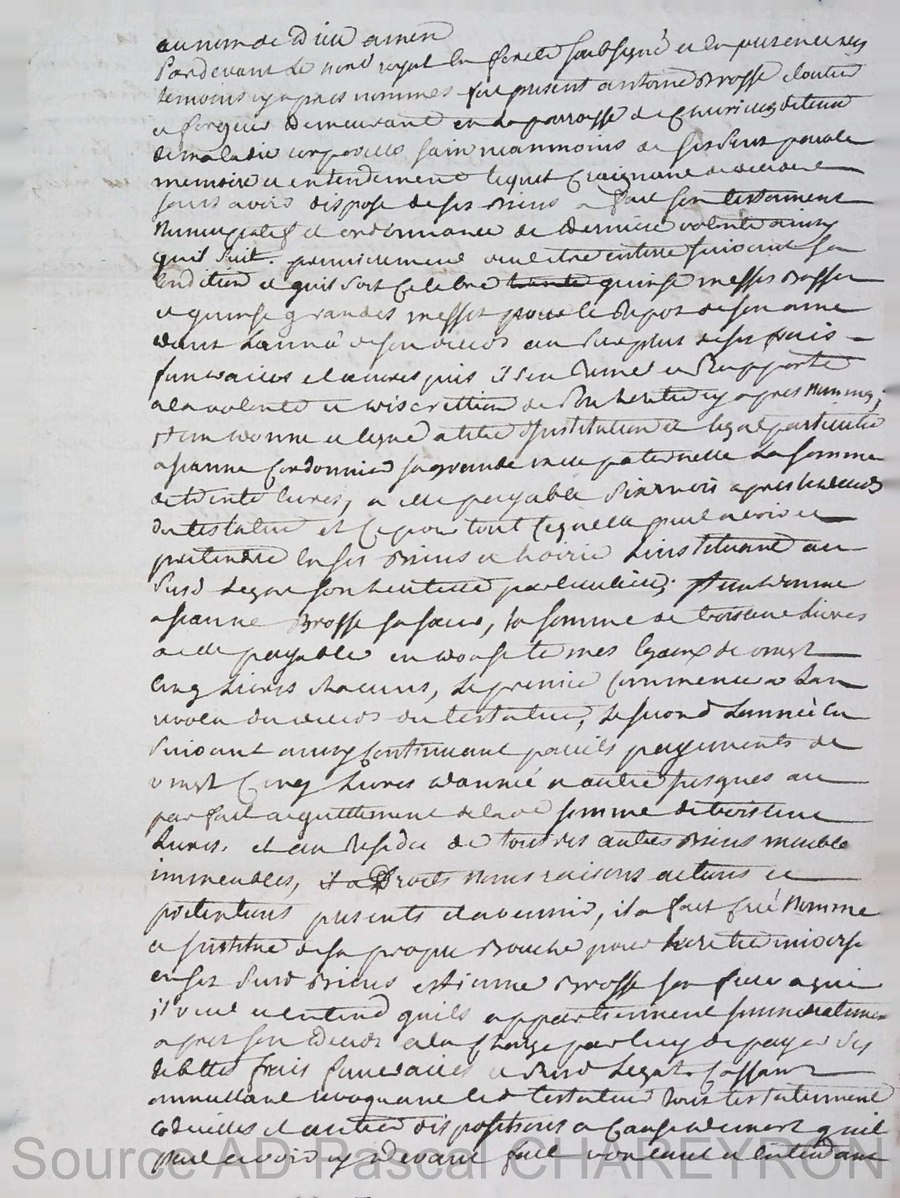 au nom de Dieu amen
Pardevant Le not.re royal En forets soubsigné et En presence des
temoins cy apres nommés fut present antoine Brosse cloutier
et forgeur Demeurant en La parroisse de Chevrieres detenu
de maladie corporelle sain neanmoins de ses sens parolle
memoire et entendement lequel Craignant de deceder
sans avoir disposé de ses Biens a fait son testament
Nuncupatif et ordonnance de derniere volonté ainsy
quil suit. premierement veut etre enterré suivant sa
Condition et quil soit Celebré trente quinse messes Basses
et quinse grandes messes pour le Repos de son ame
dans Lannée de son deces au surplus de ses frais
funeraires et œuvres pies il sen Remet et Rapporte
a la volonté et discrettion de son heritier cy apres Nommé,
item donne et legue a titre dinstitution et legat particulier
a jeanne Cordonnier sa grande mere paternelle La somme
de trente Livres, a elle payable six mois apres le deces
du testateur et Ce pour tout Ce quelle peut avoir et
pretendre En ses Biens et hoirie Linstituant au
susd Legat son heritiere particuliere; item donne
a jeanne Brosse sa sœur, la somme de trois cent Livres
a elle payable en douse termes Egaux de vingt
Cinq Livres chacuns, Le premier Commencera Lan
revolu du deces du testateur, Le second Lannée En
suivant ainsy Continuant pareils payements de
vingt Cinq Livres dannée a autre jusques au
parfait acquittement de lad somme de trois cent
Livres. et au Residu de tous ses autres Biens meubles
immeubles, Droits Noms raisons actions et
pretentions presents et avennir, il a fait Créé Nommé
et Institué de sa propre Bouche pour heritier universel
en ses susd Biens estienne Brosse son frere a qui
il veut et entend quils appartiennent immediatement
apres son deces a la Charge par luy de payer ses
debtes frais funeraires et susd Legats Cassant
annullant revoquant led testateur tous testaments
codicilles et autres dispositions a Cause de mort quil
peut avoir cy devant fait voulant et entendant
Source AD Pascal CHAREYRON